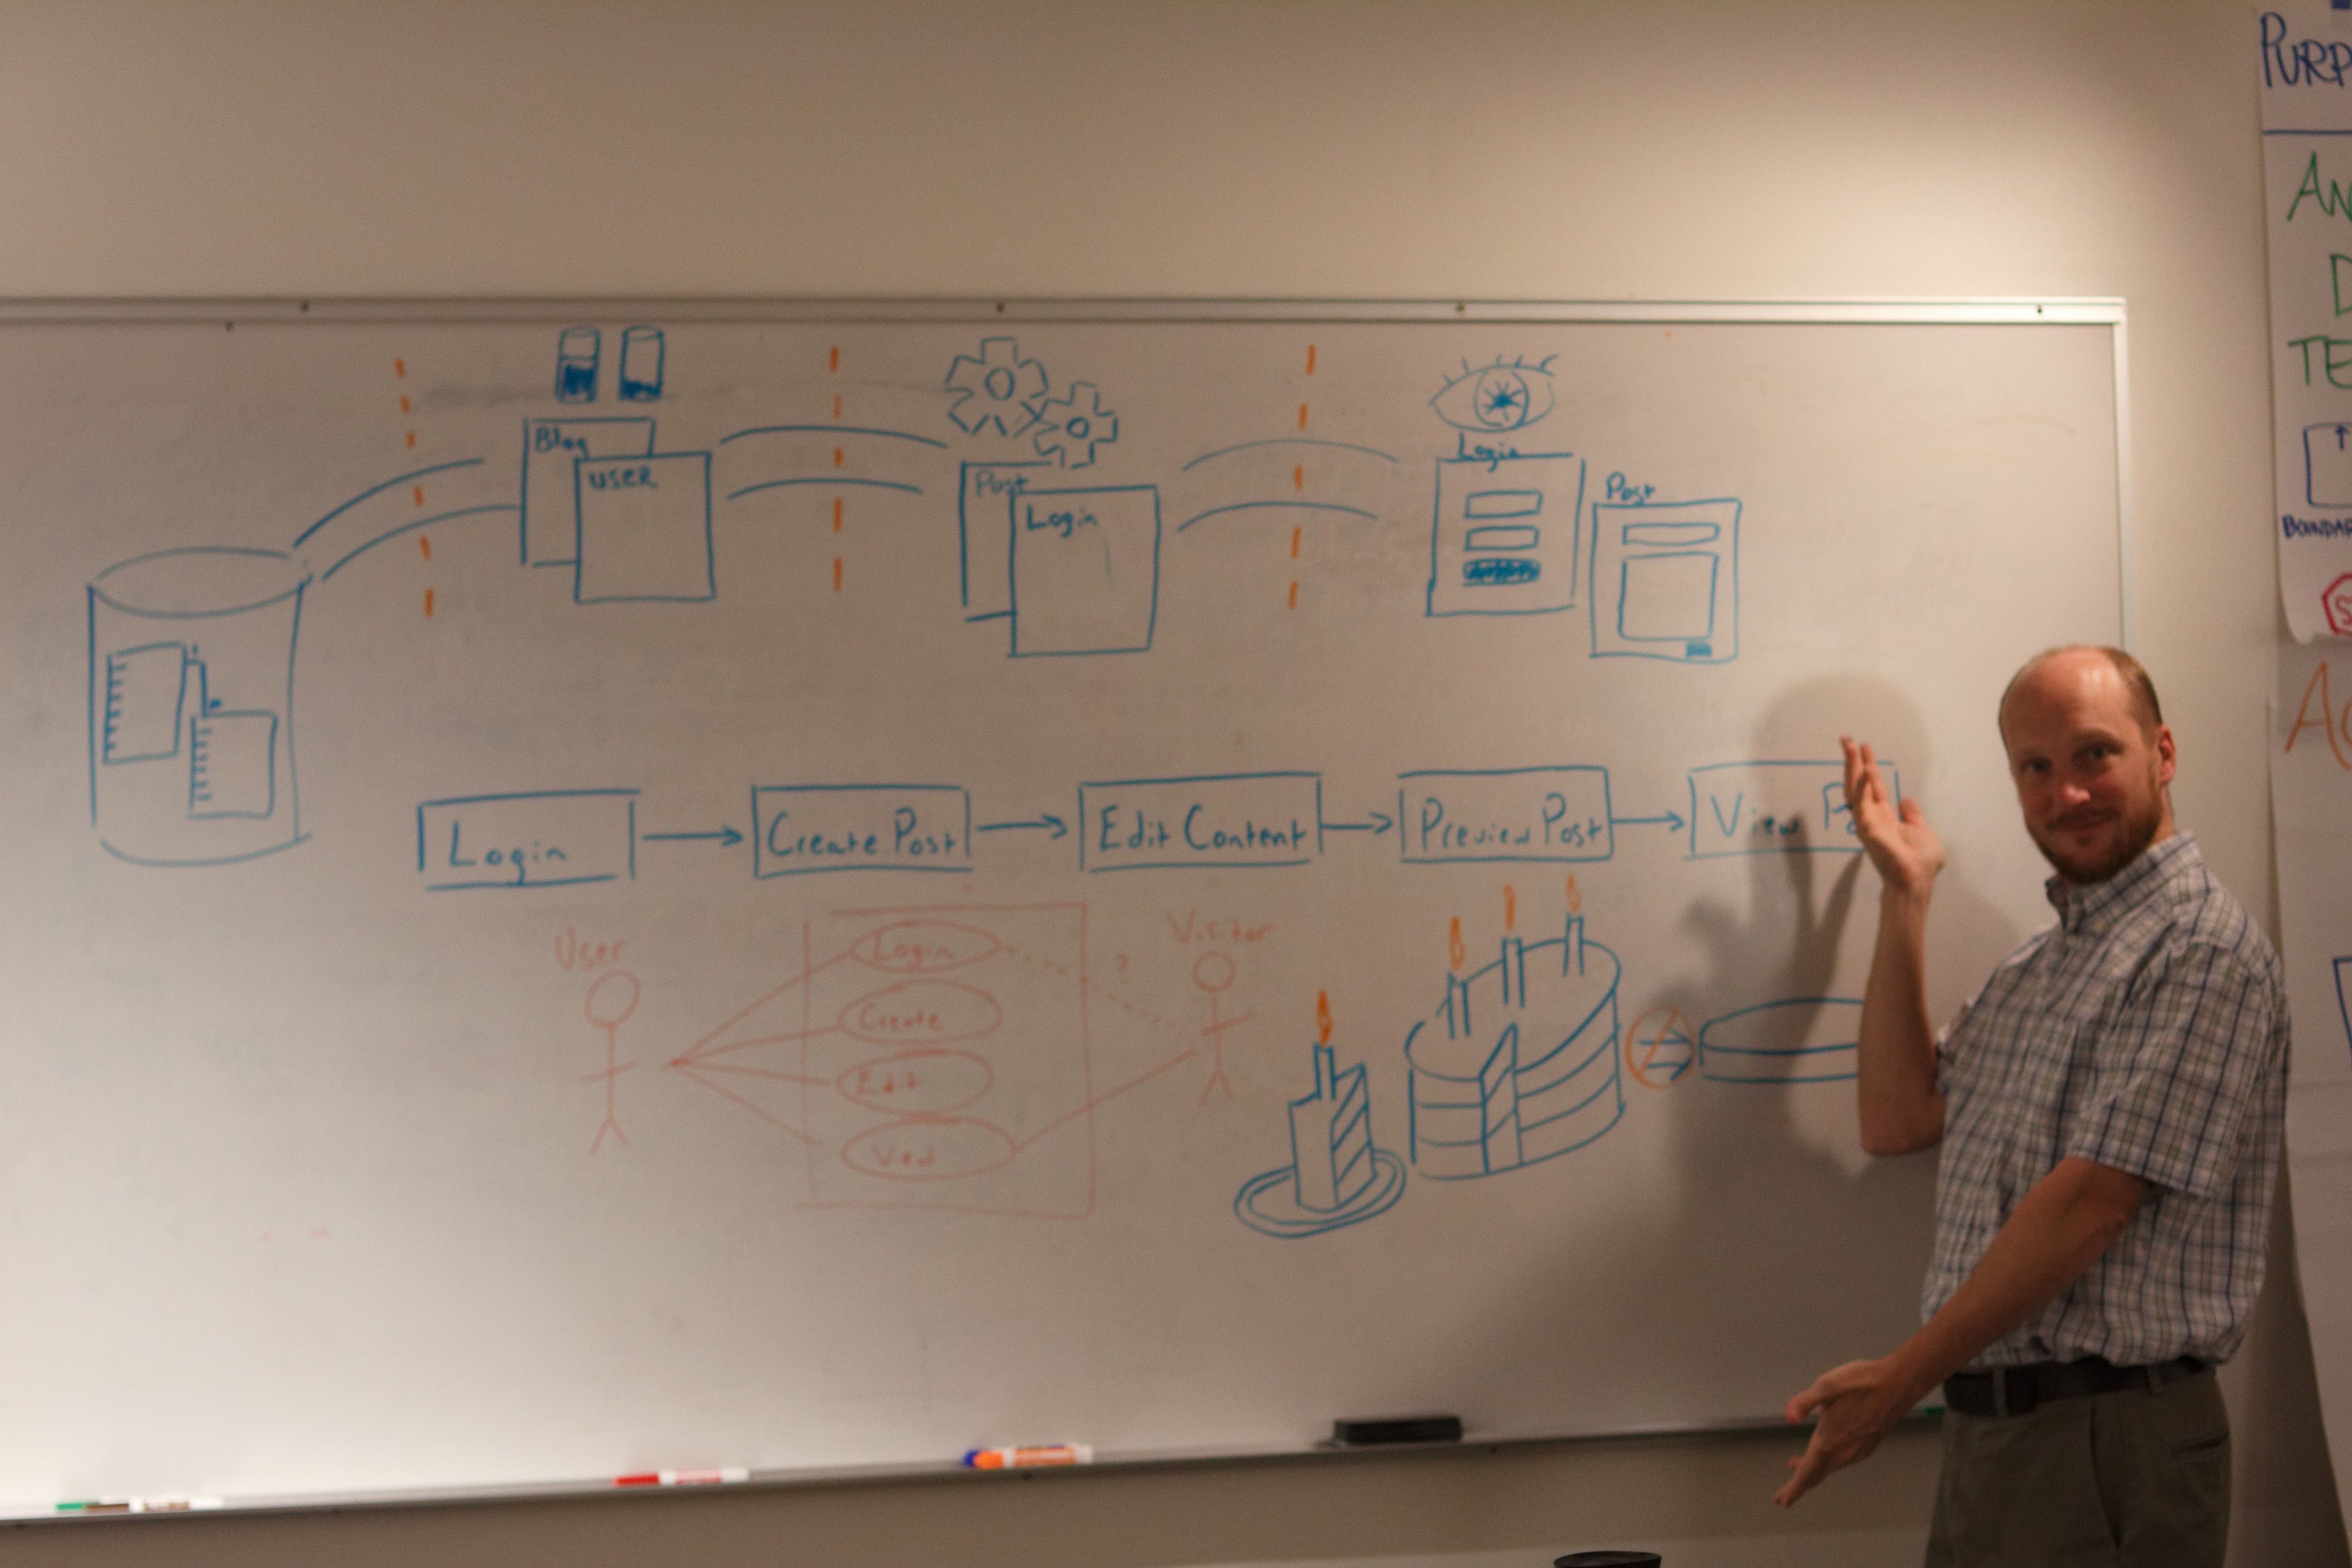 Blog
USER
Post
Login
Login
Post
Login
Create Post
Edit Content
Preview Post
View Po
User
Login
Create
Edit
View
Visitor
?
PURP
AN
D
TE
BOUNDAR
S